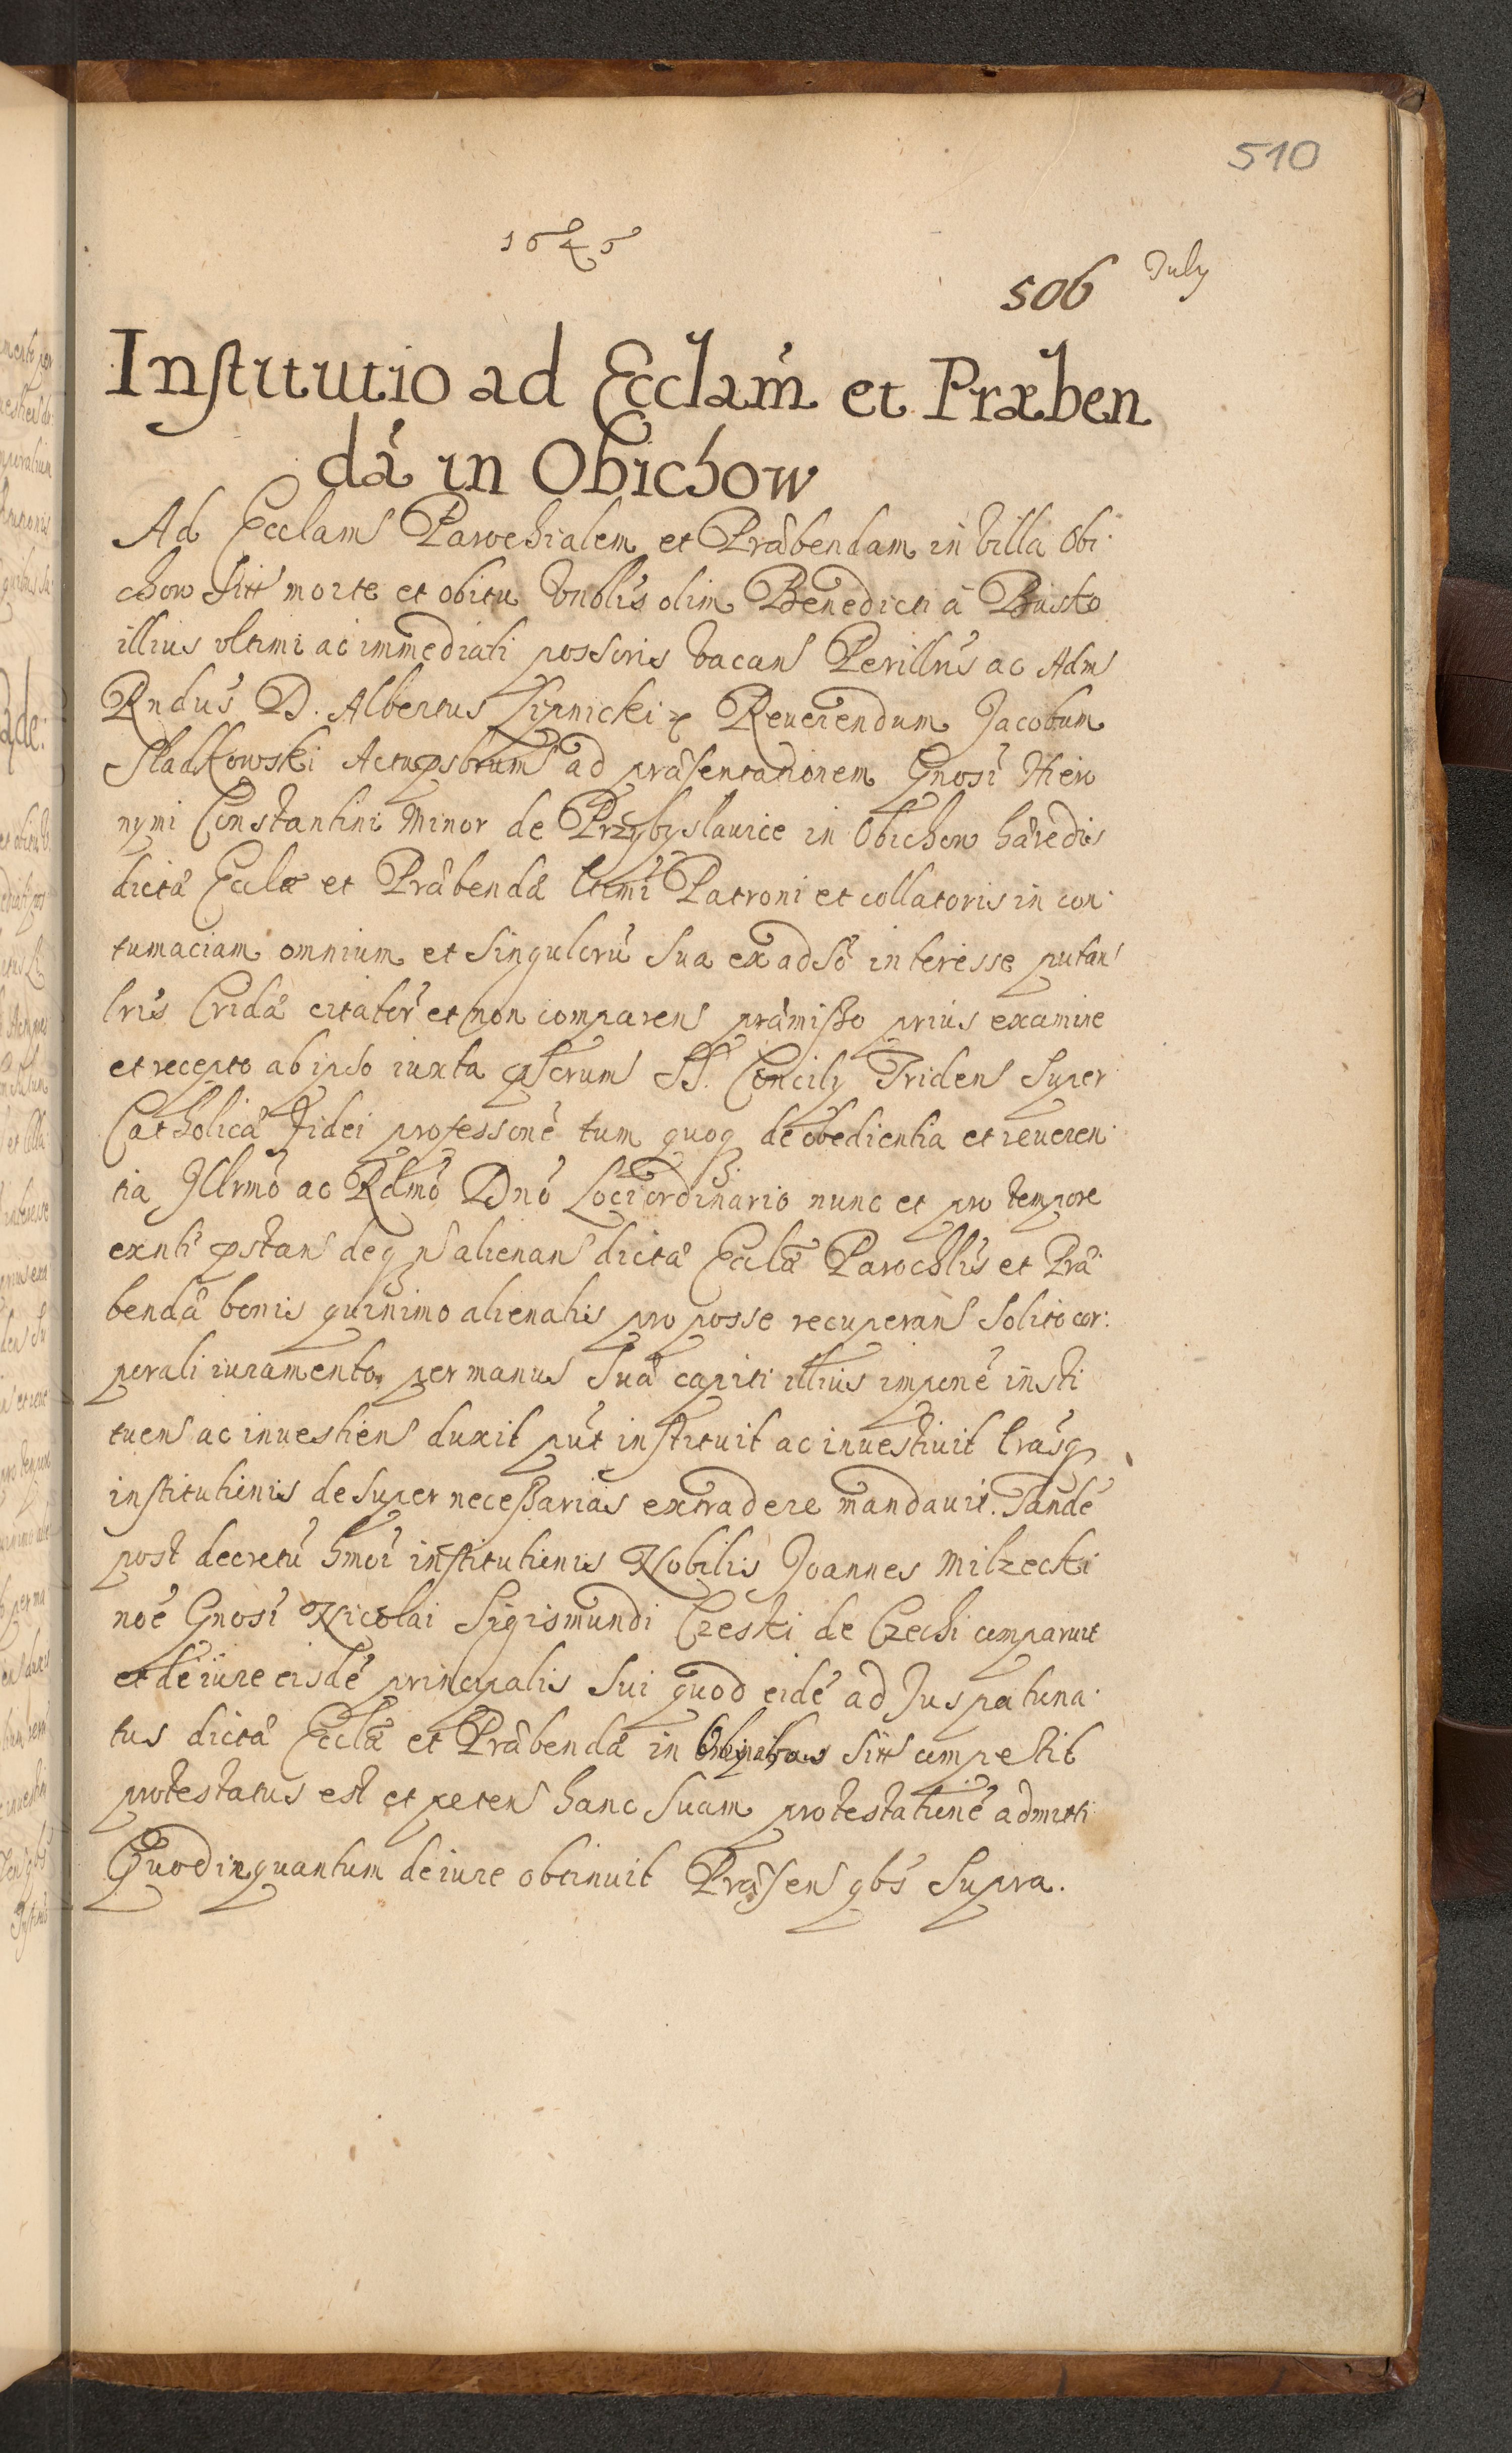 510
1646
506 July
Institutio ad Ecclam̃ et Præben
dã in Obichow
Ad Ecclam Parochialem et Præbendam in Villa Obi
chow sitt morte et obitu Vnblis olim Benedicti à Busko
illius vltimi ac immediati possoris vacan Perillris ac Adm
Rndus D. Albertus Lipnicki Reuerendum Jacobum
Sladkowski ad præsentationem Gnosi Hiero
nymi Constantini Minor de Przybyslawice in Obichow hæredis
dictæ Ecclæ et Præbendæ ltimi Patroni et collatoris in con
tumaciam omnium et singulorũ sua ex adso interesse putan
lris Cridæ citatorũ et non comparen præmisso prius examine
et recepto ab ipso iuxta SS. Concily Triden super
Catholicæ fidei professionẽ tum quoq de obedientia et reueren
tia Illrmo ac Rdmo Dno Loci ordinario nunc et pro tempore
exnti pstan deq n alienan dictæ Ecclæ Parochlis et Præ
bendæ bonis quinimo alienatis pro posse recuperan solito cor:
porali iuramento per manus suæ capiti illius imponẽ insti
tuen ac inuestien duxit put instituit ac inuestiuit lrasq
institutionis desuper necessarias extradere mandauit. Tandẽ
post decretũ hmoi institutionis Nobilis Joannes Milzecki
noẽ Gnosi Nicolai Sigismundi Czeski de Czechi comparuit
et de iure eisdẽ principalis sui quod eidẽ ad Jus patrona
tus dictæ Ecclæ et Præbendæ in sitt competit
protestatus est et peten hanc suam protestationẽ admitti
Quod inquantum de iure obtinuit Præsen qbs supra.